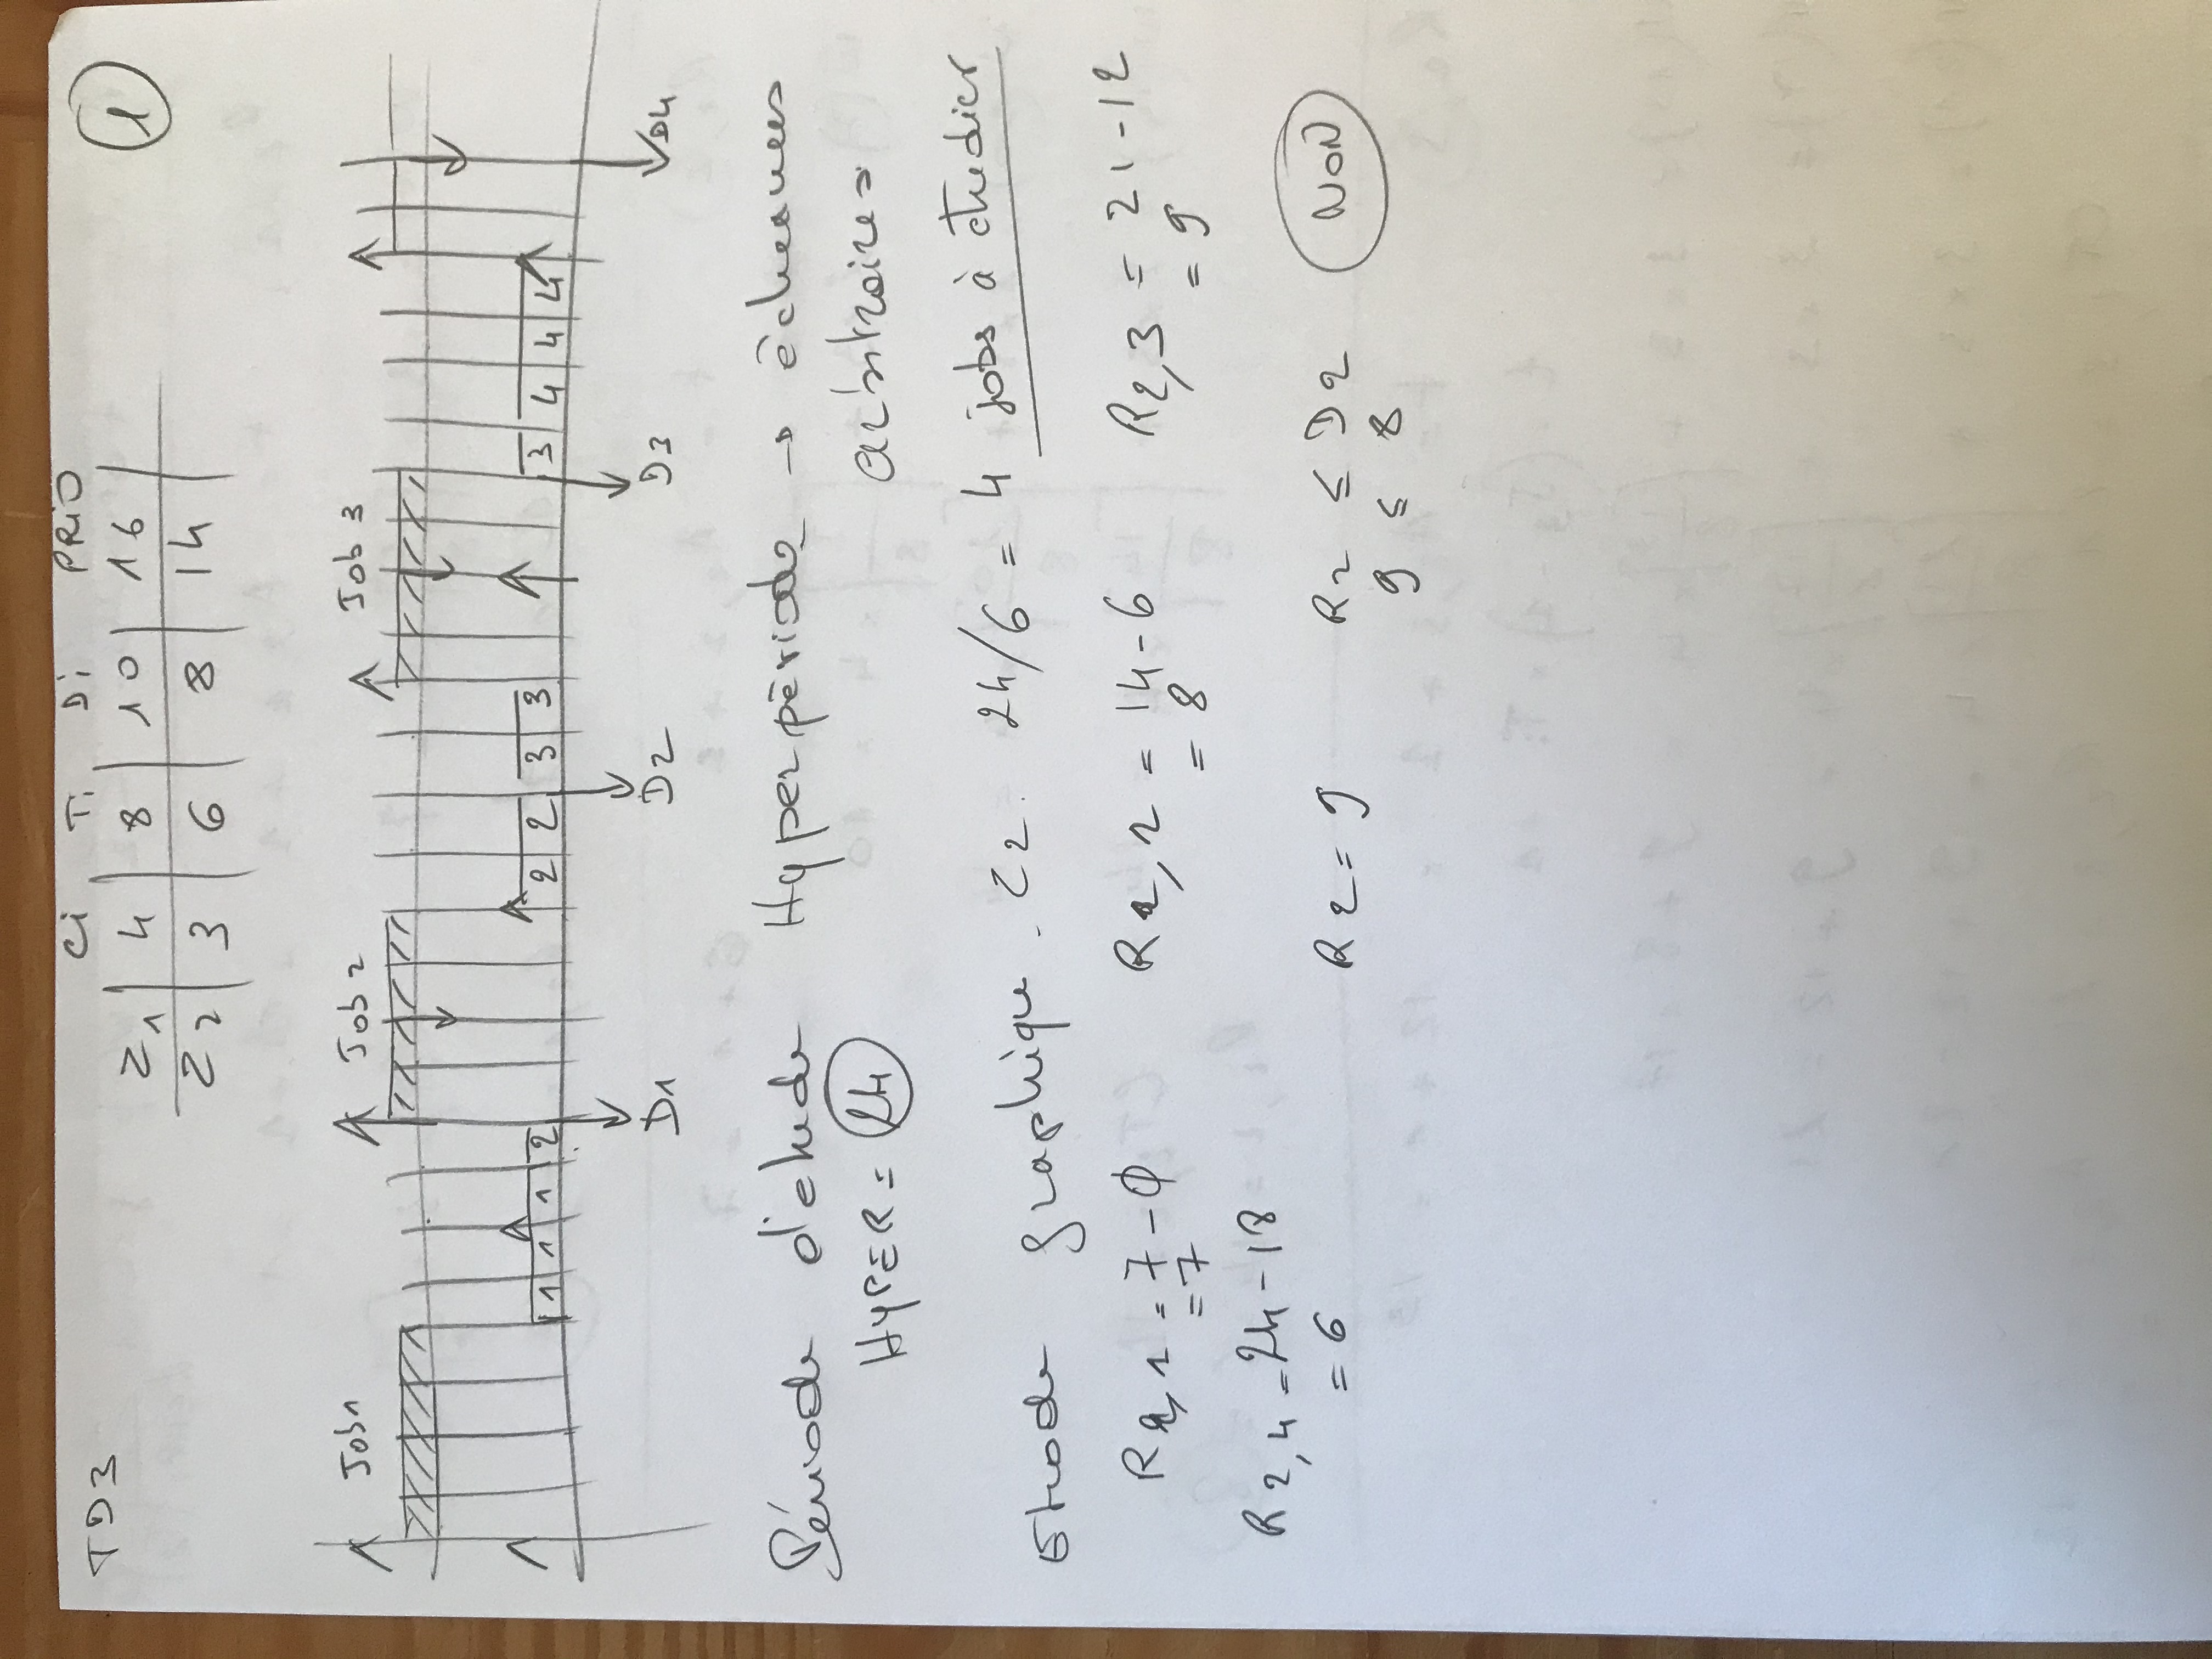 TD3
①
Ci Ti Di PRIO
τ1 4 8 10 16
τ2 3 6 8 14
Job1 Job2 Job3
1 1 1 1 2 2 2 3 3 3 4 4 4
D1 D2 D3 D4
Période d'étude Hyperpériode → échéances
HYPER = 24 arbitraires
Etude graphique. τ2. 24/6 = 4 jobs à étudier
R2,1 = 7 - 0 R2,2 = 14 - 6 R2,3 = 21 - 12
= 7 = 8 = 9
R2,4 = 24 - 18
= 6
R2 = 9 R2 ≤ D2 NON
9 ≤ 8